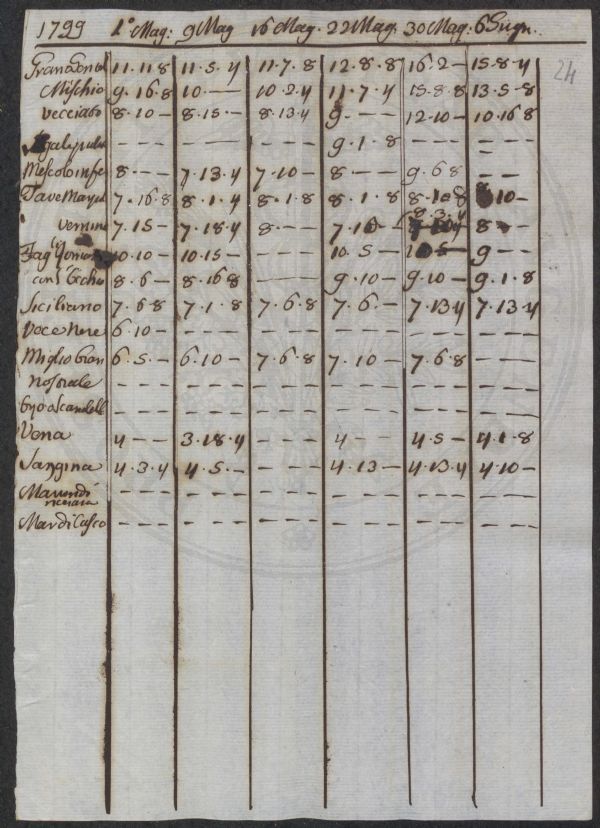 1799 1° Mag: 9 Mag 16 Mag. 22 Mag. 30 Mag: 6 Giugn.
24
11.11.8 11.5.4 11.7.8 12.8.8 16.2— 15.8.4
Mischio 9.16.8 10.—— 10.2.4 11.7.4 15.8.8 13.5.8
Vecciato 8.10— 8.15— 8.13.4 9.—— 12.10— 10.16.8
——— ——— ——— 9.1.8 ———
8.—— 7.13.4 7.10— 8.—— 9.6.8 ———
7.16.8 8.1.4 8.1.8 8.1.8 8.10.8 10—
8.3.4
7.15— 7.18.4 8.—— 7.16— 8——
10.10— 10.15— ——— 10.5— 9——
8.6— 8.16.8 ——— 9.10— 9.10— 9.1.8
Siciliano 7.6.8 7.1.8 7.6.8 7.6.— 7.13.4 7.13.4
6.10— ——— ——— ——— ——— ———
Miglio 6.5.— 6.10— 7.6.8 7.10— 7.6.8 ———
Nostrale ——— ——— ——— ——— ——— ———
——— ——— ——— ——— ——— ———
Vena 4—— 3.18.4 ——— 4—— 4.5— 4.1.8
Saggina 4.3.4 4.5.— ——— 4.13— 4.13.4 4.10—
——— ——— ——— ——— ——— ———
——— ——— ——— ——— ——— ———